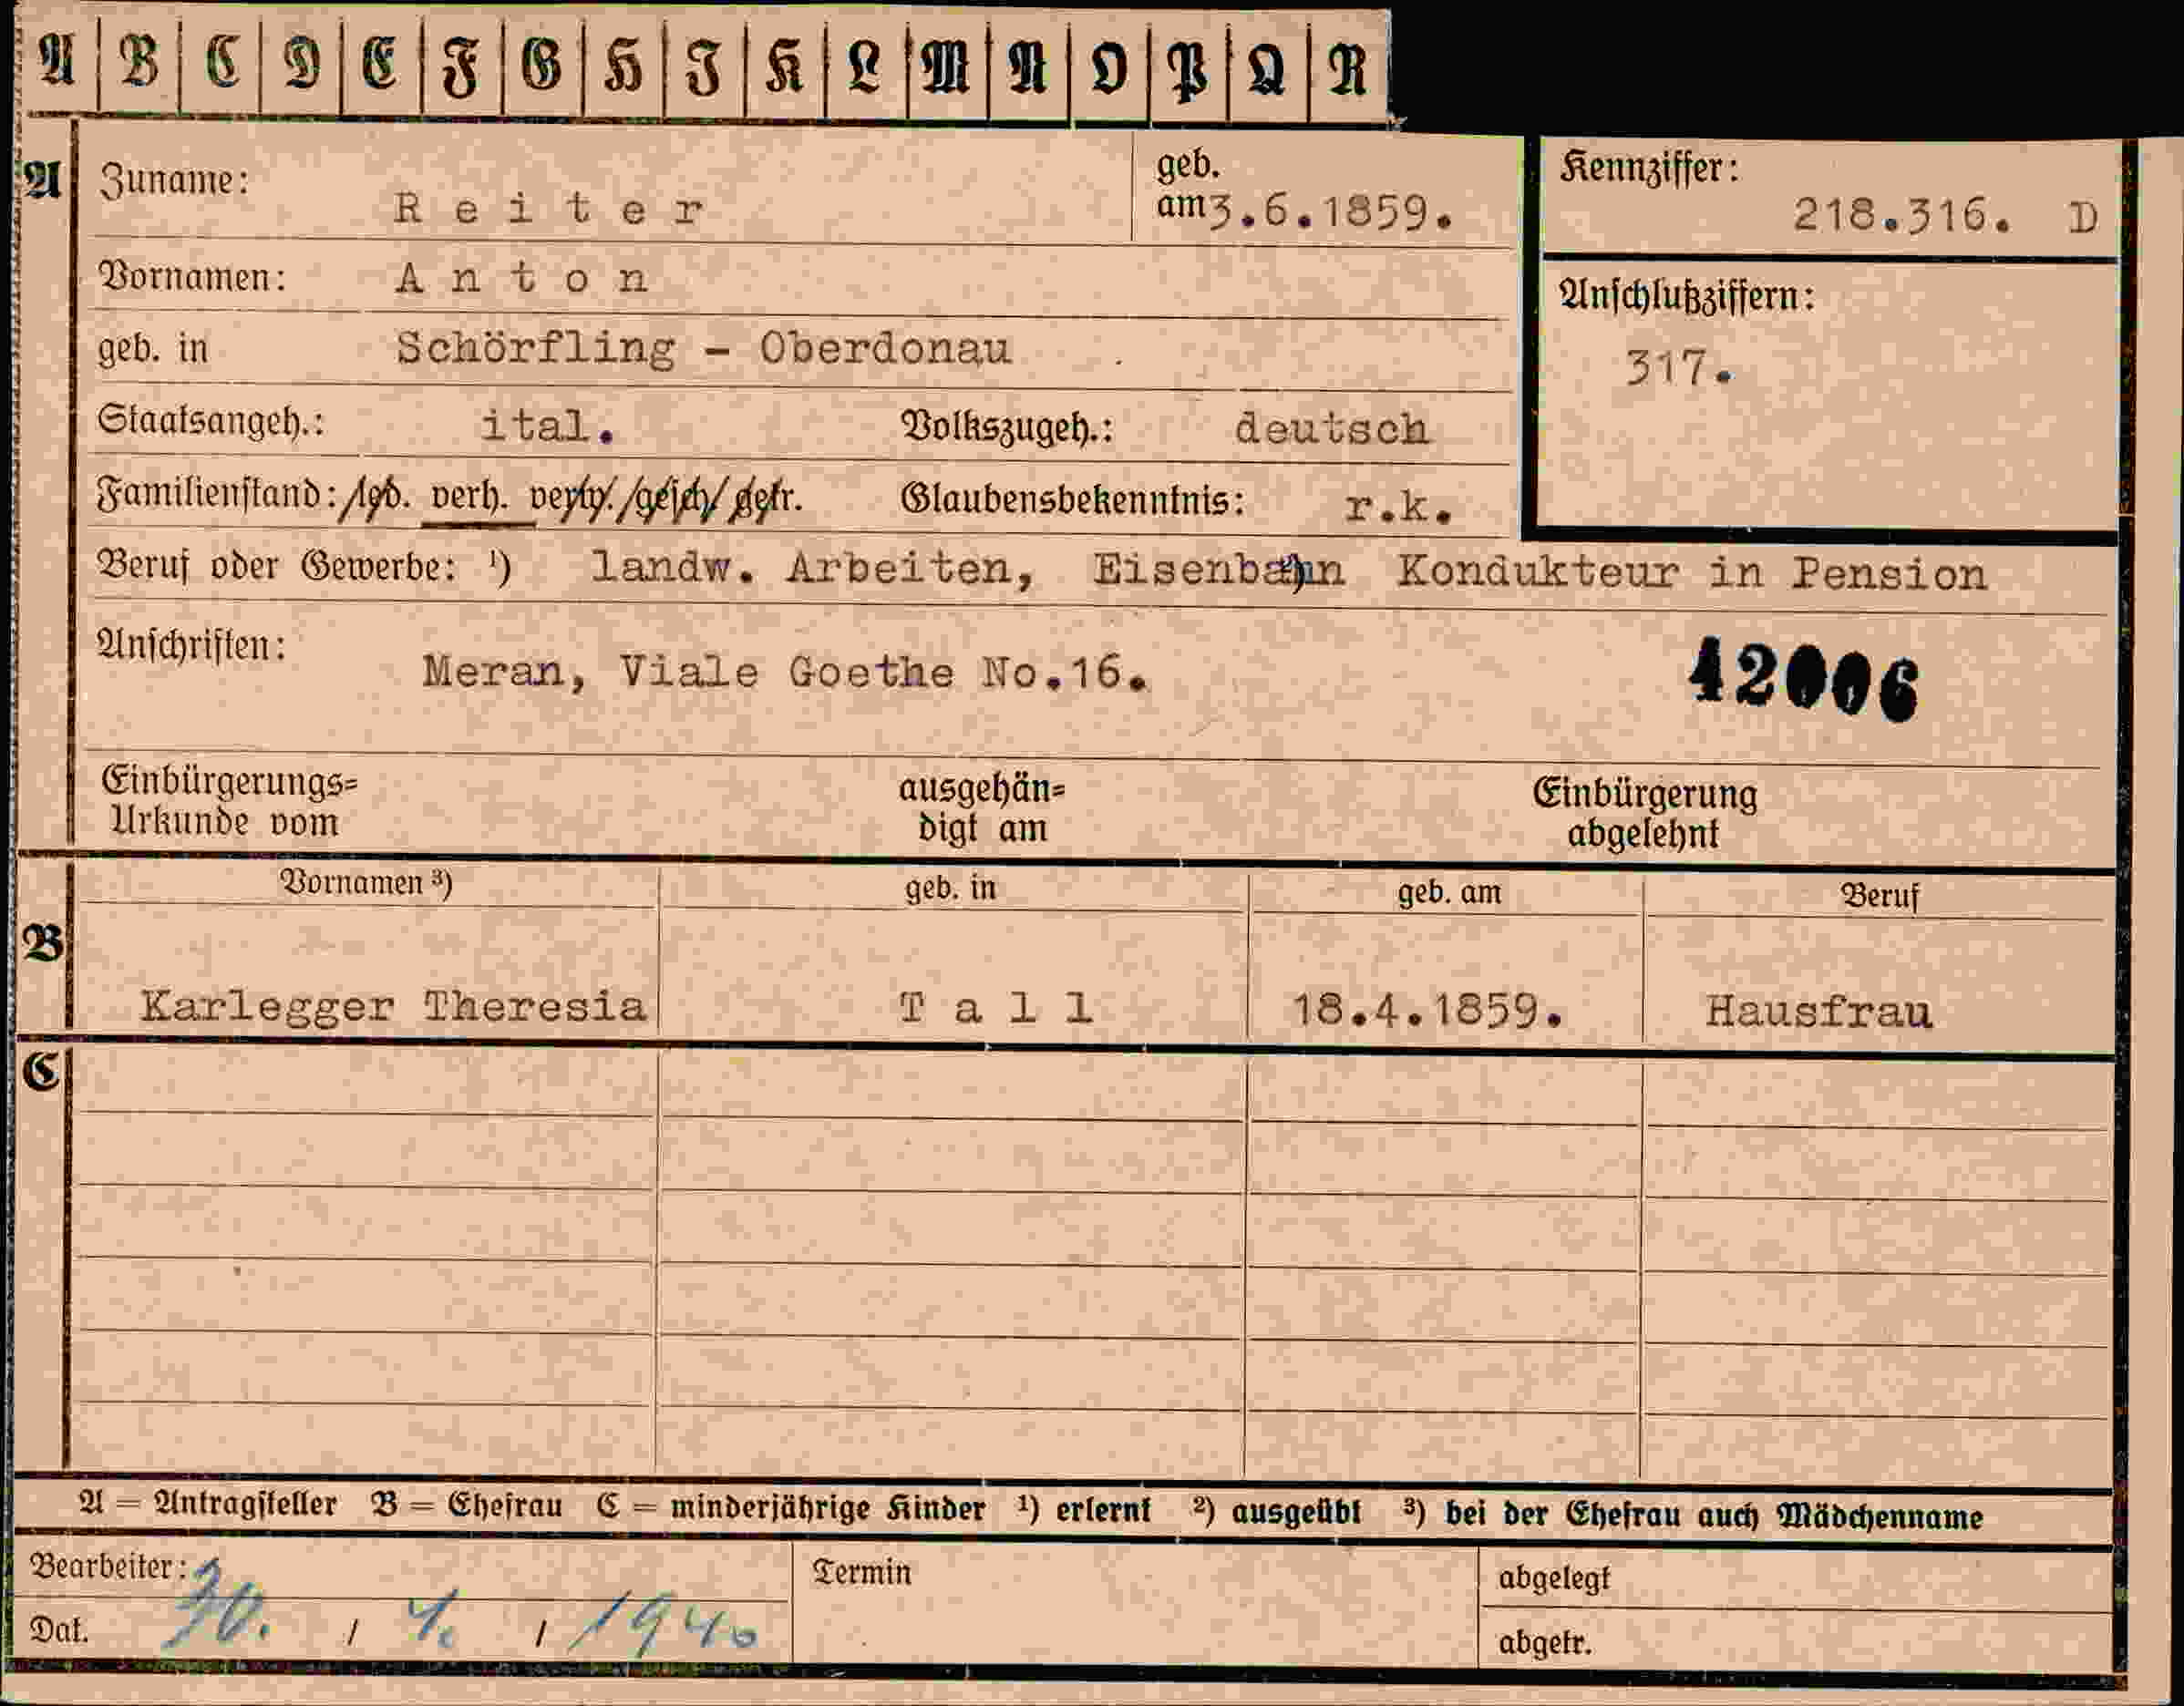 A B C D E F G H I K L M N O P Q R
A Zuname: Reiter geb. am 3.6.1859. Kennziffer: 218.316. D
Vornamen: Anton
Anschlußziffern: 317.
geb. in Schörfling - Oberdonau
Staatsangeh.: ital. Volkszugeh.: deutsch
Familienstand: led. verh. verw. gesch. getr. Glaubensbekenntnis: r.k.
Beruf oder Gewerbe: ¹) landw. Arbeiten, Eisenbahn Kondukteur in Pension
Anschriften: Meran, Viale Goethe No.16. 42006
Einbürgerungs= ausgehän= Einbürgerung
Urkunde vom digt am abgelehnt
Vornamen ³) geb. in geb. am Beruf
B
Karlegger Theresia Tall 18.4.1859. Hausfrau
C
A = Antragsteller B = Ehefrau C = minderjährige Kinder ¹) erlernt ²) ausgeübt ³) bei der Ehefrau auch Mädchenname
Bearbeiter: Termin abgelegt
Dat. 30. / 4. / 1940 abgetr.